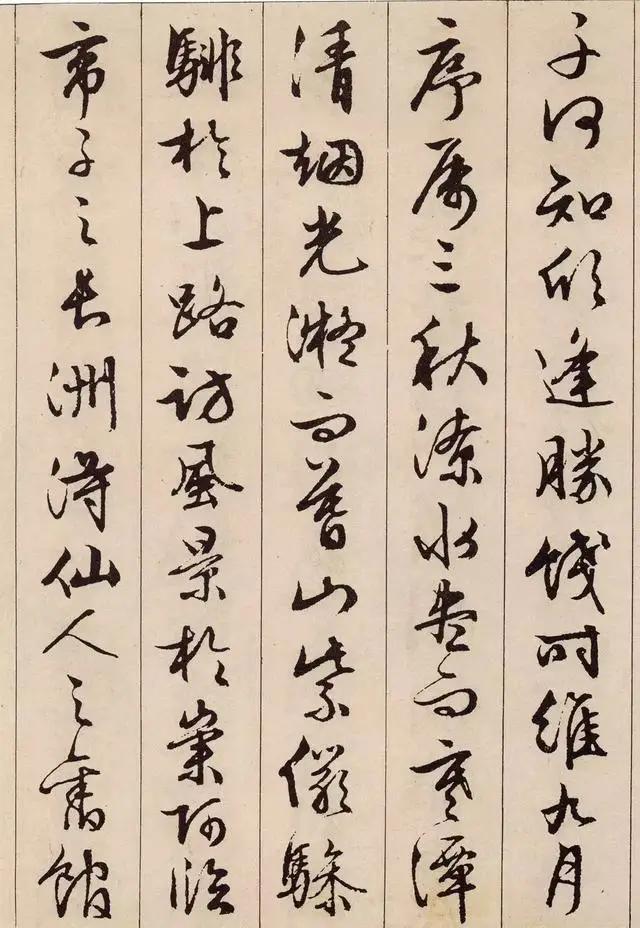 子何知欣逢勝餞時維九月
序属三秋潦水盡而寒潭
清烟光凝而暮山紫儼驂
騑於上路訪風景於崇阿臨
帝子之長洲得仙人之舊館